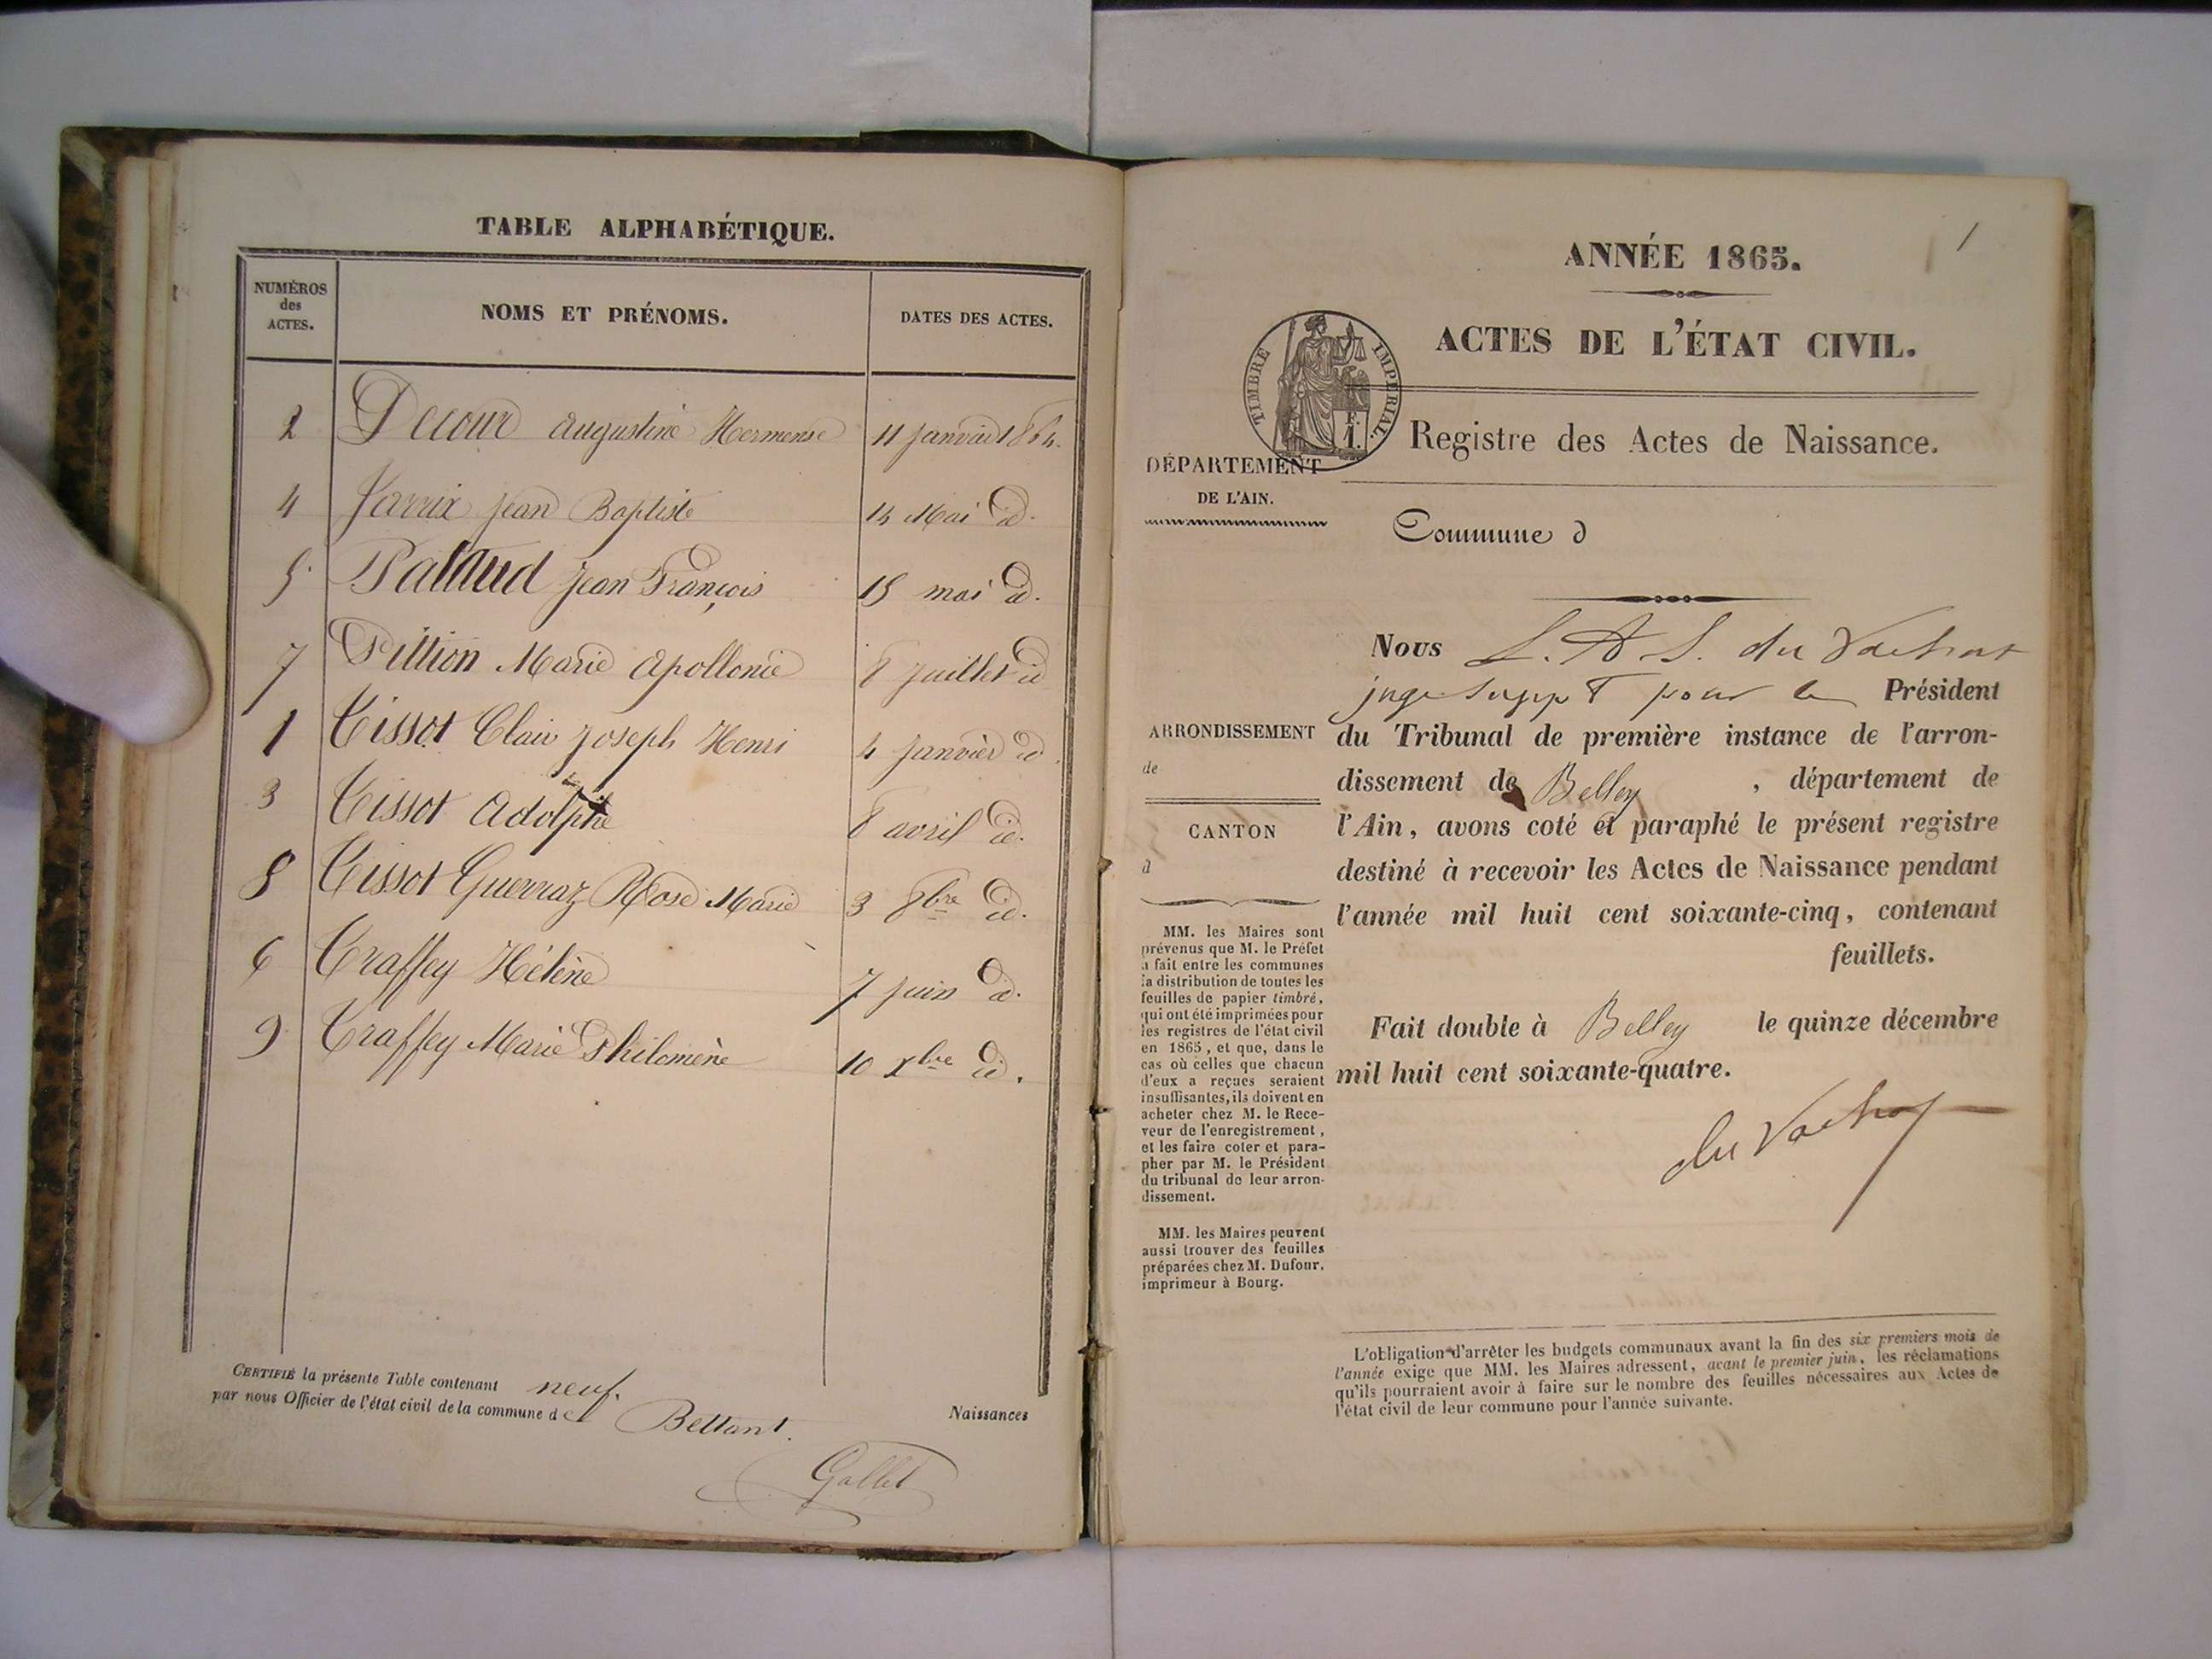 TABLE ALPHABÉTIQUE.
NUMÉROS
des
ACTES.
NOMS ET PRÉNOMS.
DATES DES ACTES.
2 Decour Augustine Hermense 11 Janvier 1864.
4 Jarrix Jean Baptiste 14 Mai id.
5 Pallud Jean François 15 mai id.
7 Pittion Marie Apollonie 8 Juillet id
1 Tissot Clair Joseph Henri 4 Janvier id.
3 Tissot Adolphe 8 avril id.
8 Tissot Guerraz Rose Marie 3 8bre id.
6 Traffey Hélène 7 juin id.
9 Traffey Marie Philomène 10 xbre id.
CERTIFIÉ la présente Table contenant neuf. Naissances
par nous Officier de l'état civil de la commune de Bettant.
Gallet
1
ANNÉE 1865.
ACTES DE L'ÉTAT CIVIL.
TIMBRE IMPÉRIAL.
Registre des Actes de Naissance.
DÉPARTEMENT
DE L'AIN.
Commune d
ARRONDISSEMENT
de
CANTON
d
MM. les Maires sont
prévenus que M. le Préfet
a fait entre les communes
la distribution de toutes les
feuilles de papier timbré,
qui ont été imprimées pour
les registres de l'état civil
en 1865, et que, dans le
cas où celles que chacun
d'eux a reçues seraient
insuffisantes, ils doivent en
acheter chez M. le Rece-
veur de l'enregistrement,
et les faire coter et para-
pher par M. le Président
du tribunal de leur arron-
dissement.
MM. les Maires peuvent
aussi trouver des feuilles
préparées chez M. Dufour,
imprimeur à Bourg.
Nous L. A. S. du Vachat
juge supp t pour le Président
du Tribunal de première instance de l'arron-
dissement de Belley, département de
l'Ain, avons coté et paraphé le présent registre
destiné à recevoir les Actes de Naissance pendant
l'année mil huit cent soixante-cinq, contenant
feuillets.
Fait double à Belley le quinze décembre
mil huit cent soixante-quatre.
du Vachat
L'obligation d'arrêter les budgets communaux avant la fin des six premiers mois de
l'année exige que MM. les Maires adressent, avant le premier juin, les réclamations
qu'ils pourraient avoir à faire sur le nombre des feuilles nécessaires aux Actes de
l'état civil de leur commune pour l'année suivante.